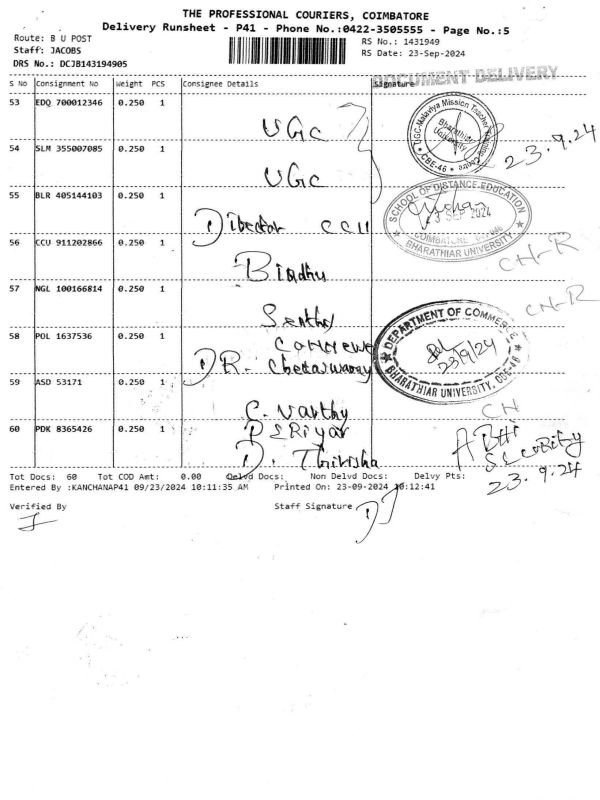 THE PROFESSIONAL COURIERS, COIMBATORE
Delivery Runsheet - P41 - Phone No.:0422-3505555 - Page No.:5
Route: B U POST
RS No.: 1431949
Staff: JACOBS
RS Date: 23-Sep-2024
DRS No.: DCJB143194905
DOCUMENT DELIVERY
S No Consignment No Weight PCS Consignee Details Signature
53 EDQ 700012346 0.250 1
UGC
54 SLM 355007085 0.250 1
UGC
23.9.24
55 BLR 405144103 0.250 1
Director CCII
56 CCU 911202866 0.250 1
Bindhu
CH-R
57 NGL 100166814 0.250 1
CH-R
58 POL 1637536 0.250 1
Commerce
DR.
59 ASD 53171 0.250 1
C. Varthy
CH
60 PDK 8365426 0.250 1
PERiyar
D. Thirisha
ABHI
Security
23.9.24
Bharathiar University
CBE-46
SCHOOL OF DISTANCE EDUCATION
23 SEP 2024
BHARATHIAR UNIVERSITY
DEPARTMENT OF COMMERCE
23/9/24
BHARATHIAR UNIVERSITY, CBE-46
Tot Docs: 60 Tot COD Amt: 0.00 Delvd Docs: Non Delvd Docs: Delvy Pts:
Entered By :KANCHANAP41 09/23/2024 10:11:35 AM Printed On: 23-09-2024 10:12:41
Verified By
Staff Signature